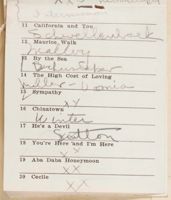 11 California and You
Schwellenbach
12 Maurice Walk
Mallory
13 By the Sea
14 The High Cost of Loving
Miller - Vonia
15 Sympathy
XX
16 Chinatown
Winter
17 He's a Devil
Sutton
18 You're Here and I'm Here
X X
19 Aba Daba Honeymoon
XX
20 Cecile
XX